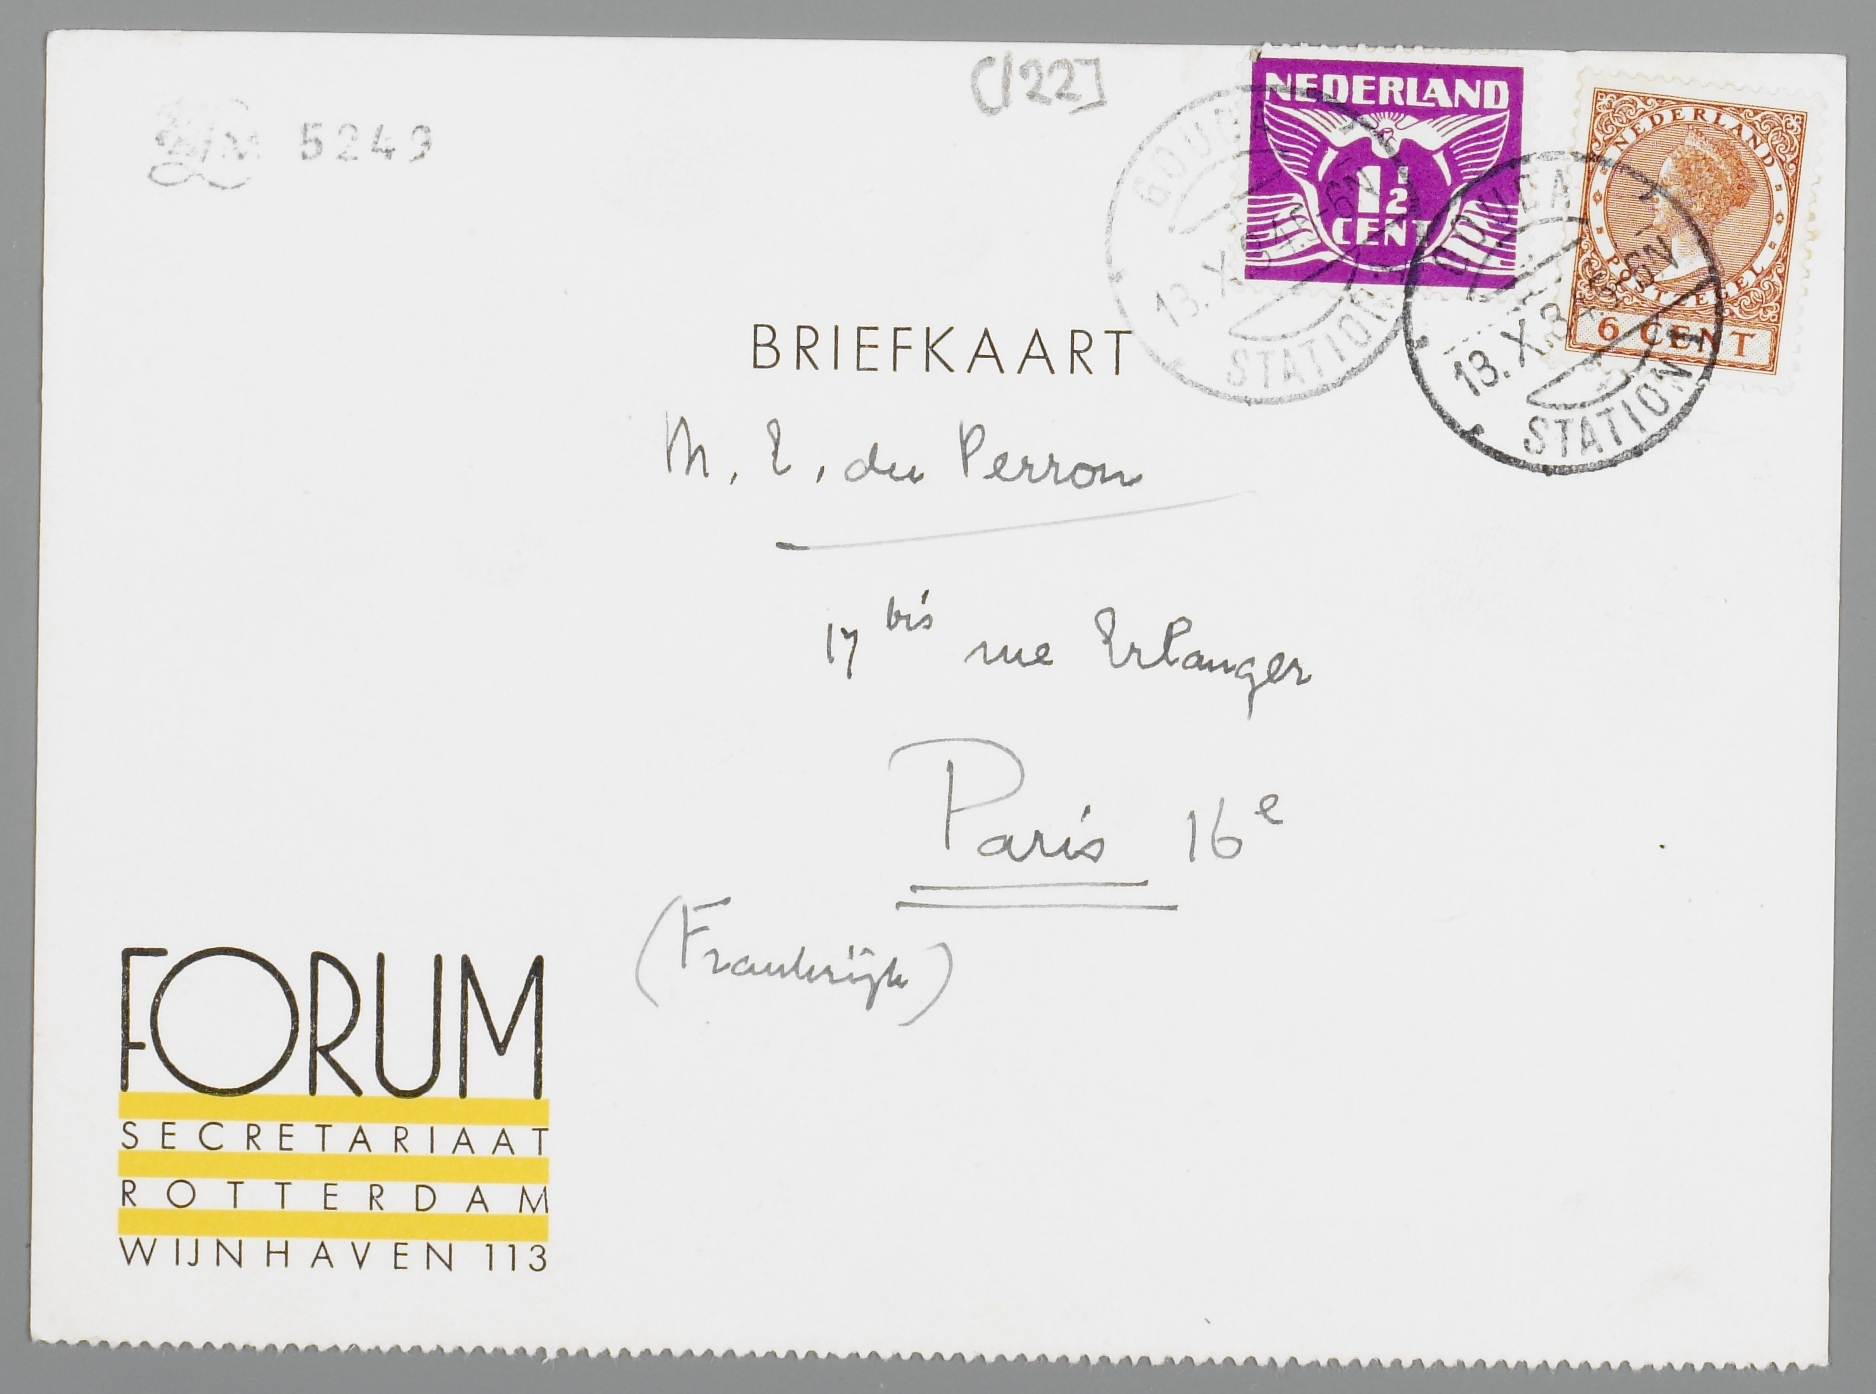 5249
(122]
NEDERLAND
1½
CENT
NEDERLAND
POSTZEGEL
6 CENT
GOUDA
13.X
STATION
GOUDA
13.X.3
STATION
BRIEFKAART
M. E. du Perron
17 bis rue Erlanger
Paris 16e
(Frankrijk)
FORUM
SECRETARIAAT
ROTTERDAM
WIJNHAVEN 113